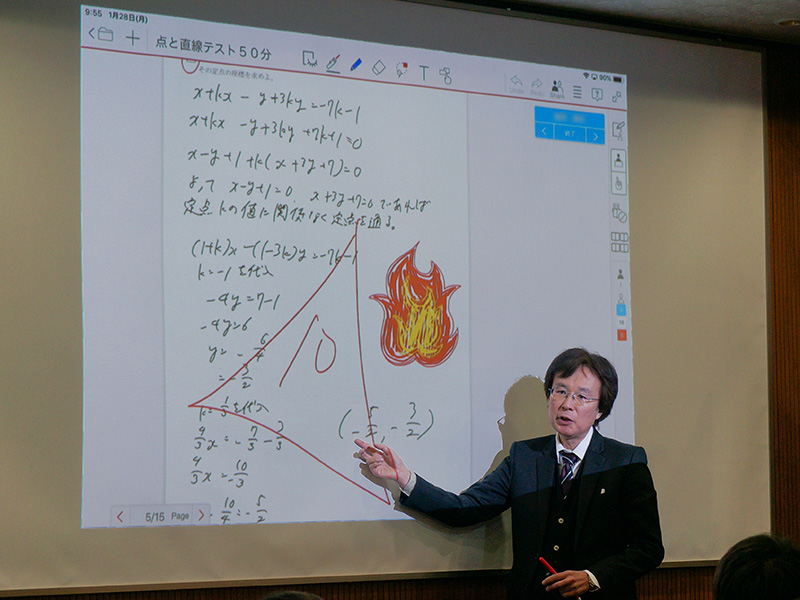 9:55 1月28日(月)
90%
点と直線テスト50分
T
Undo Redo Share
その定点の座標を求めよ。
終了
x+kx-y+3ky=-7k-1
x+kx-y+3ky+7k+1=0
x-y+1+k(x+3y+7)=0
よって x-y+1=0, x+3y+7=0であれば
定点kの値に関係なく定点を通る。
(1+k)x-(1-3k)y=-7k-1
k=-1を代入
-4y=7-1
-4y=6
y=-6/4
=-3/2
k=1/3を代入
4/3x=-7/3-3/3
4/3x=-10/3
-10/4=-5/2
10
(-5/2, -3/2)
5/15 Page